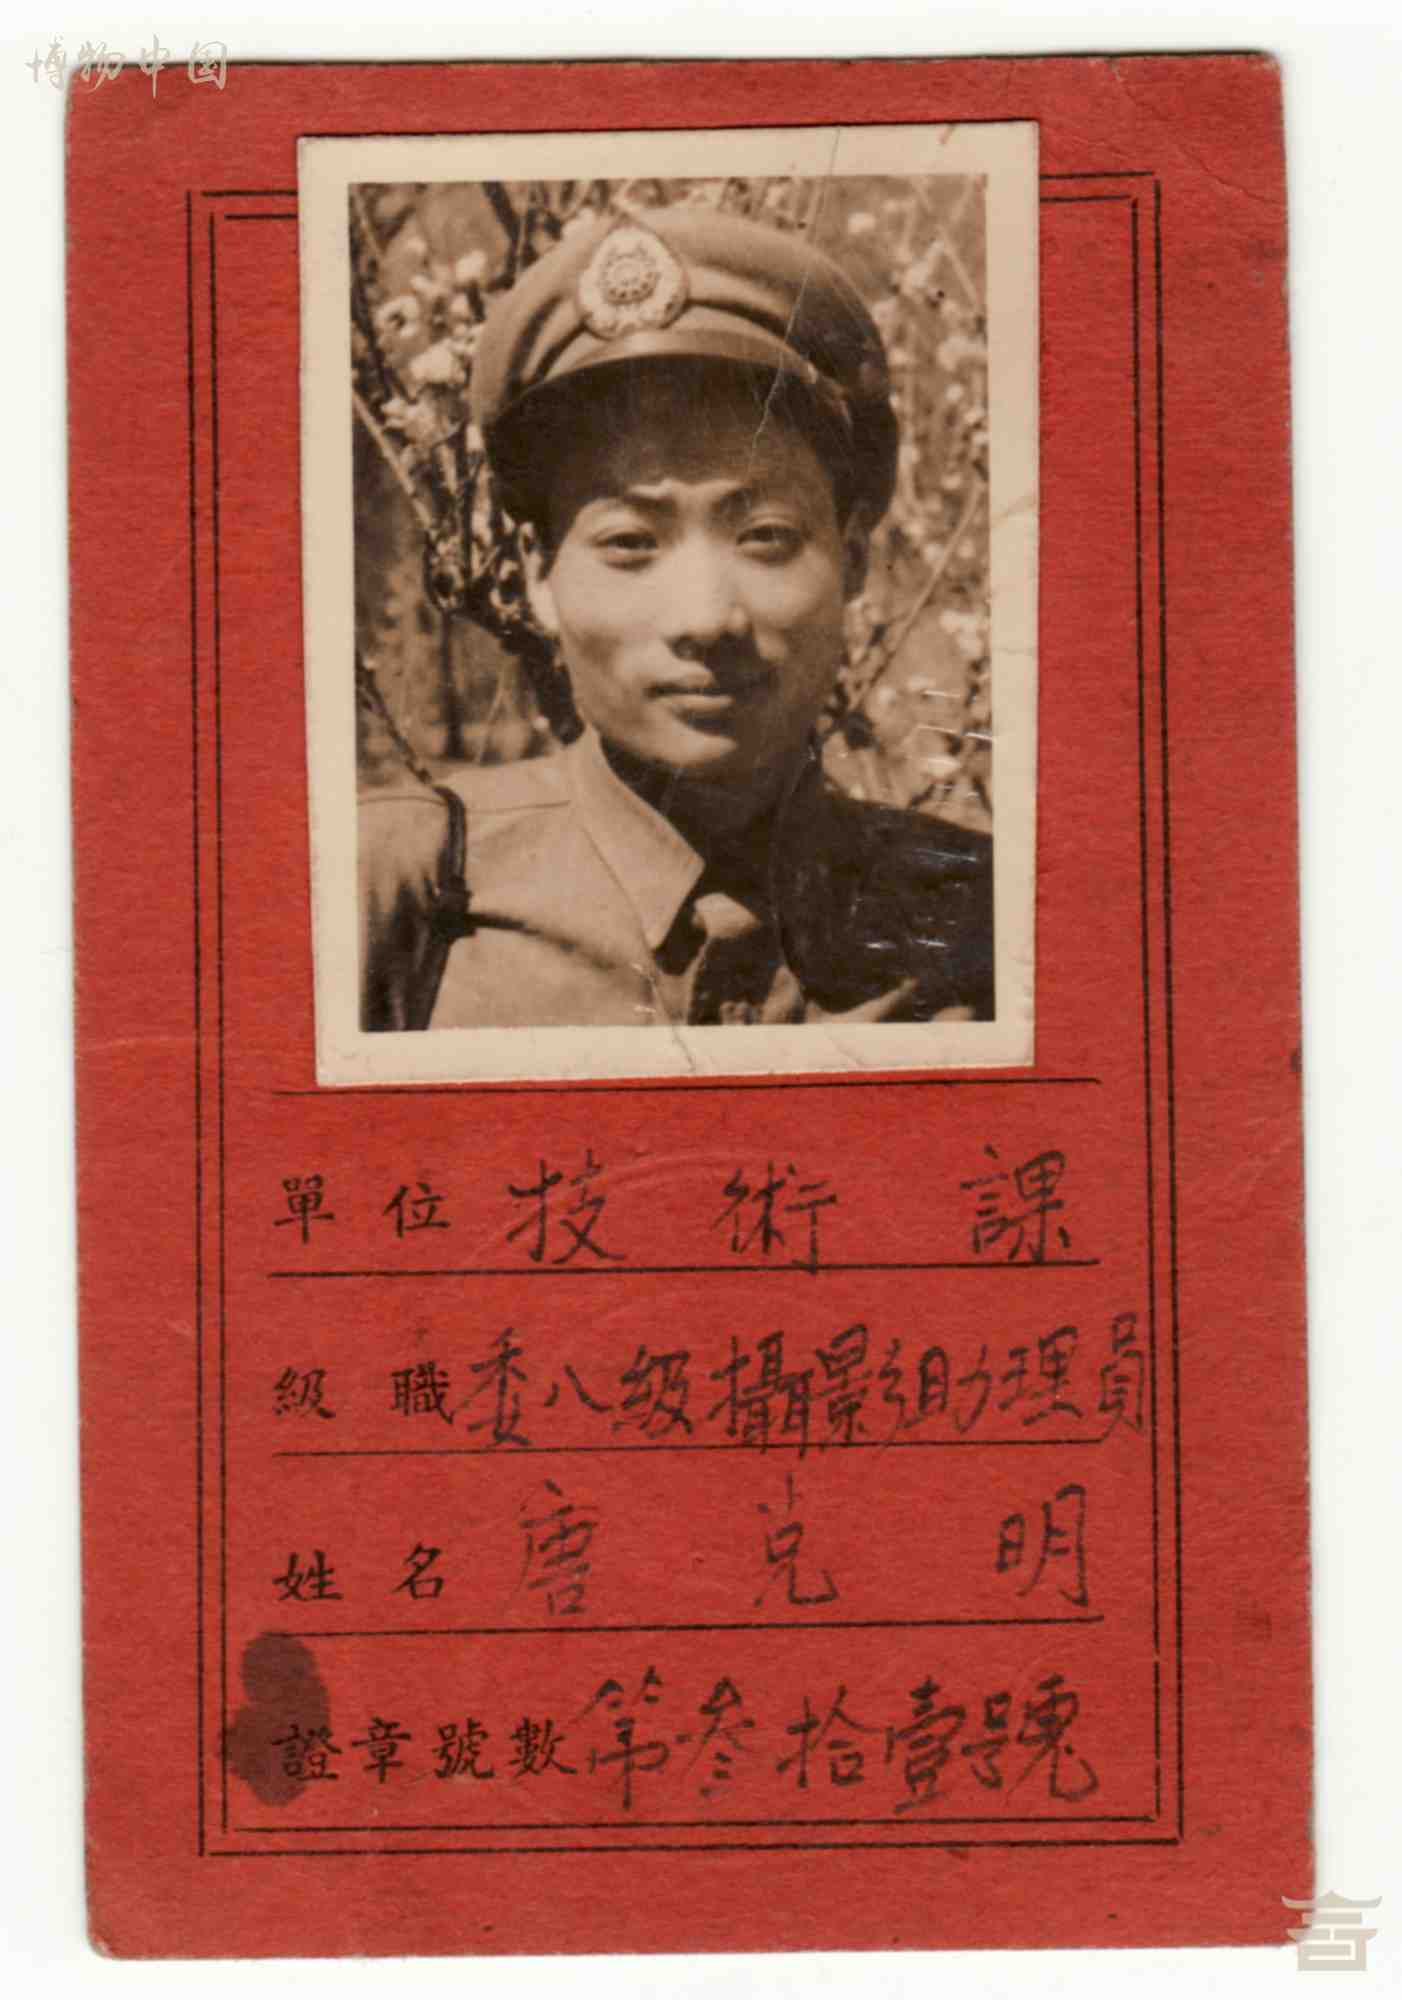 博物中国
單位 技術課
級職 委八級攝影助理員
姓名 唐克明
證章號數 第叁拾壹號